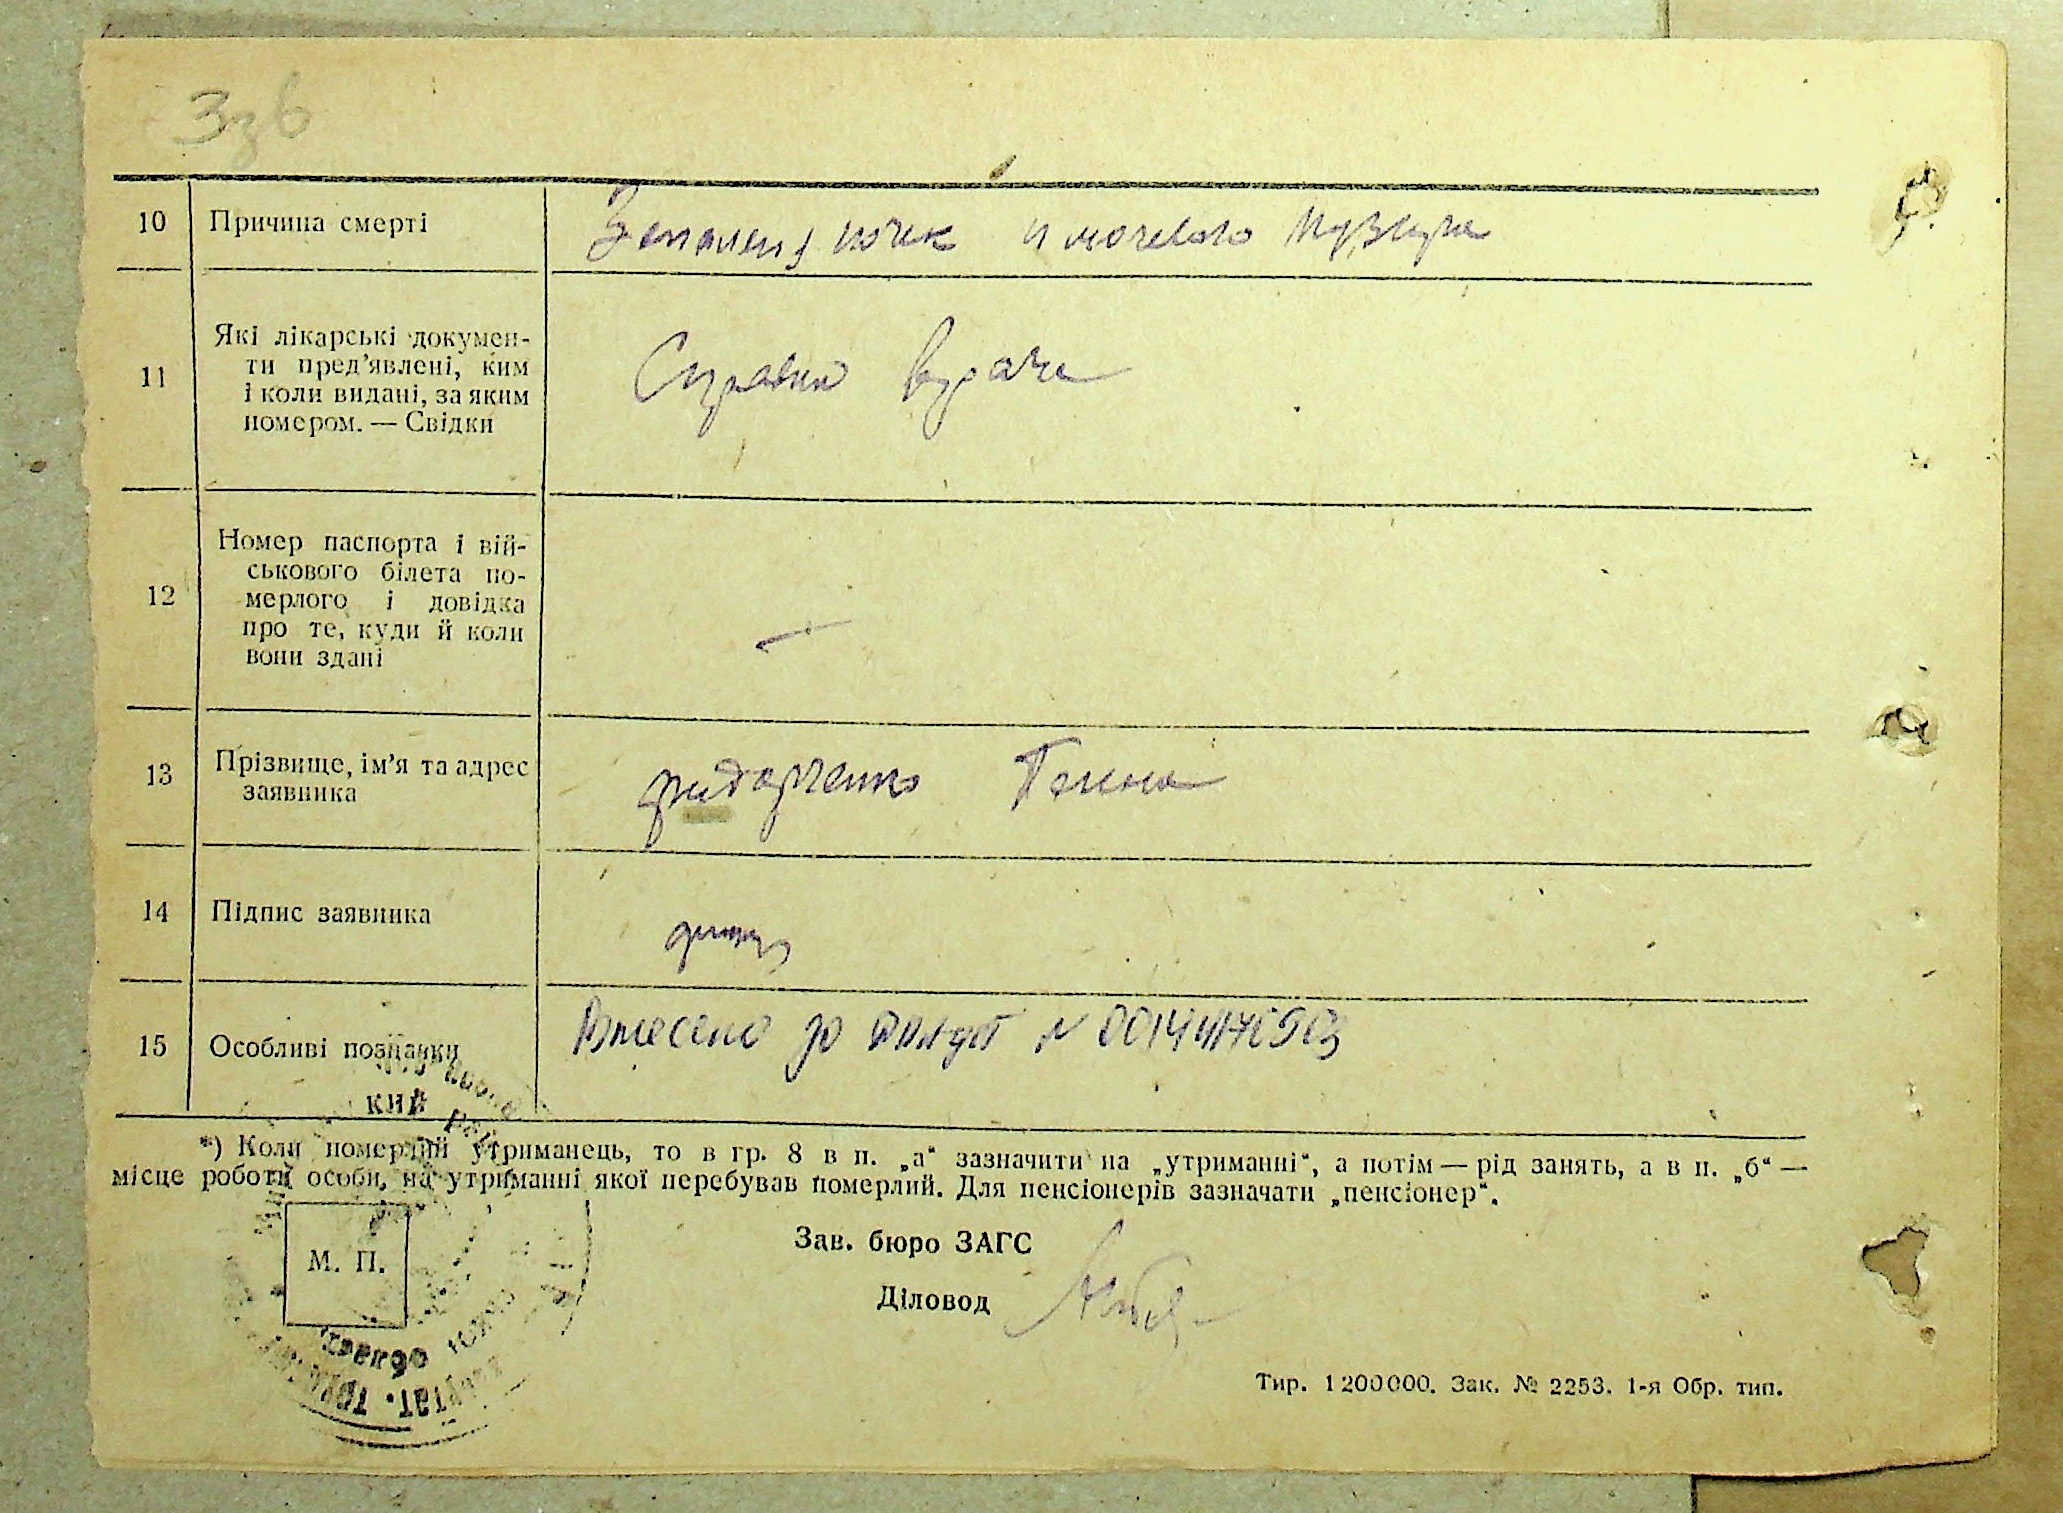 10 Причина смерті почек и мочевого пузыря
11 Які лікарські докумен-
ти пред’явлені, ким
і коли видані, за яким
номером. — Свідки
Справка врача
12 Номер паспорта і вій-
ськового білета по-
мерлого і довідка
про те, куди й коли
вони здані
—
13 Прізвище, ім’я та адрес
заявника
14 Підпис заявника
15 Особливі позначки
Внесено до №
*) Коли померлий утриманець, то в гр. 8 в п. „а“ зазначити на „утриманні“, а потім — рід занять, а в п. „б“ —
місце роботи особи, на утриманні якої перебував померлий. Для пенсіонерів зазначати „пенсіонер“.
М. П.
Зав. бюро ЗАГС
Діловод
Тир. 1200000. Зак. № 2253. 1-я Обр. тип.